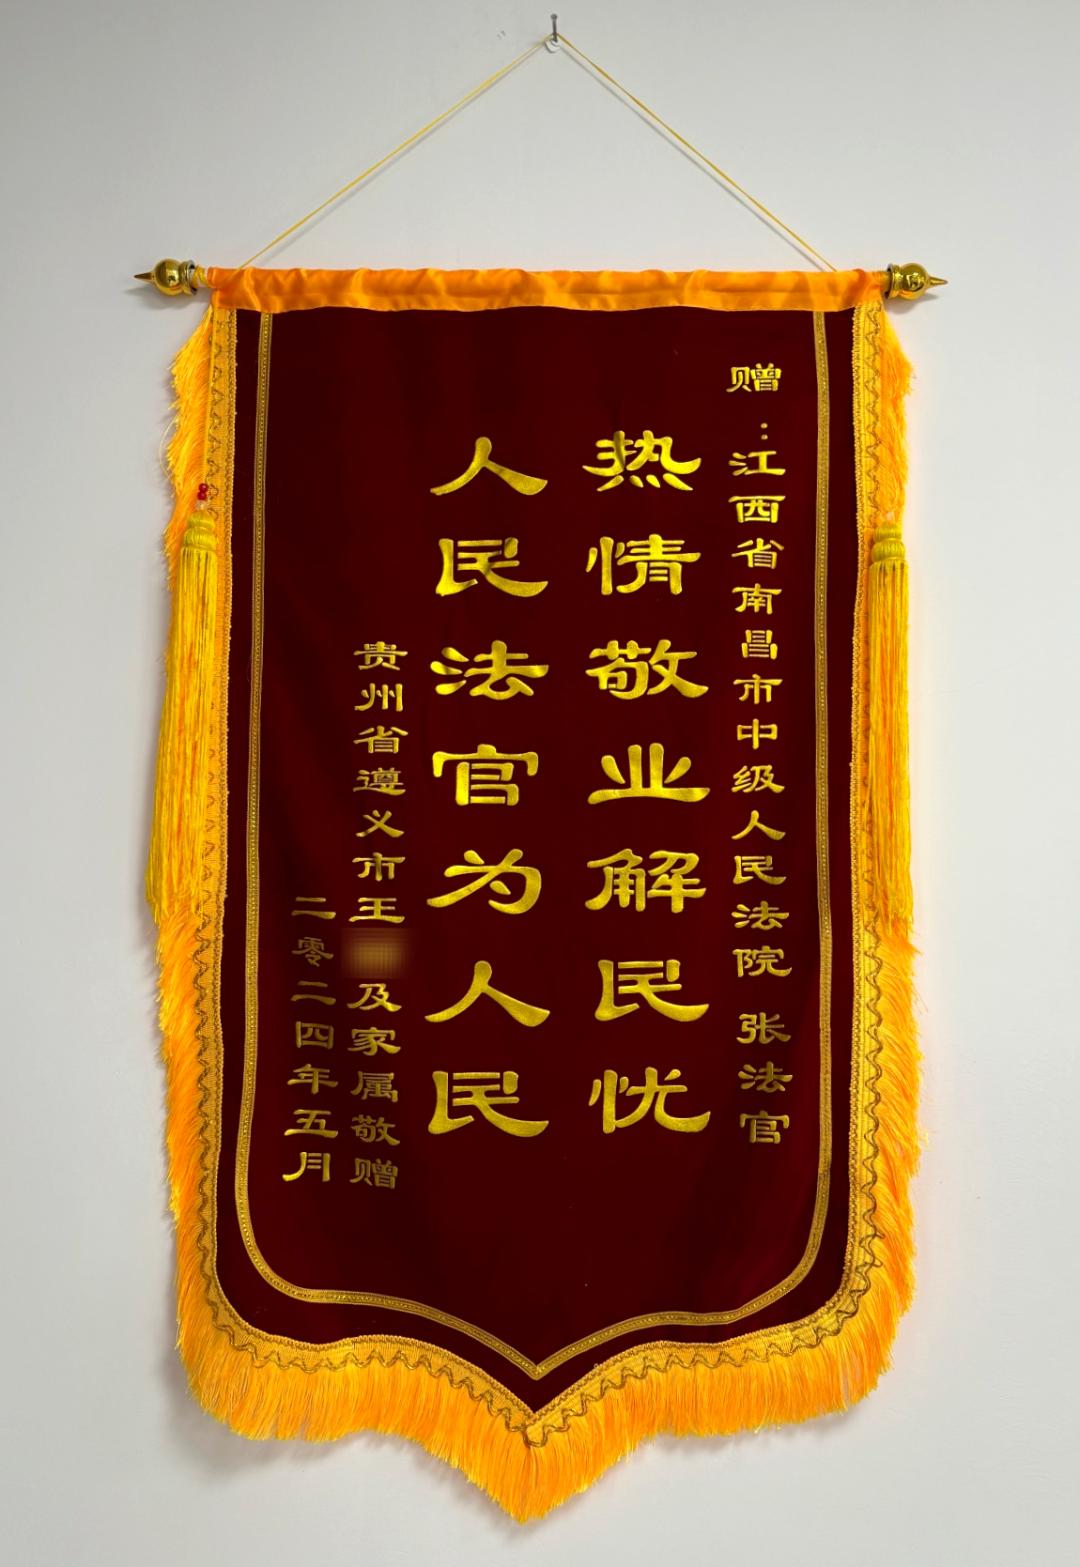 赠：江西省南昌市中级人民法院 张法官
热情敬业解民忧
人民法官为人民
贵州省遵义市王 及家属敬赠
二零二四年五月